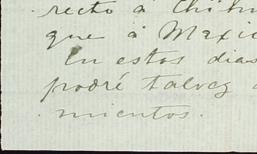 recto á Chihu
que á Mexic
En estos dias
podré talvez
mientos.